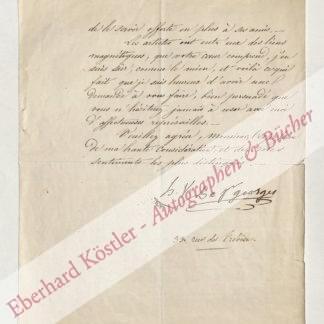 de le savoir offerte en plus à ses amis. —
Les artistes ont entr'eux des liens
magnétiques, que votre cœur comprend, j'en
suis sûr, comme le mien; et voilà ce qui
fait que je suis heureux d'avoir une
demande à vous faire, bien persuadé que
vous n'hésiterez jamais à user avec moi
d'affectueuses représailles. —
Veuillez agréer, Monsieur,
de ma haute considération, et des
sentiments les plus distingués
de St Georges
rue de
Eberhard Köstler - Autographen & Bücher